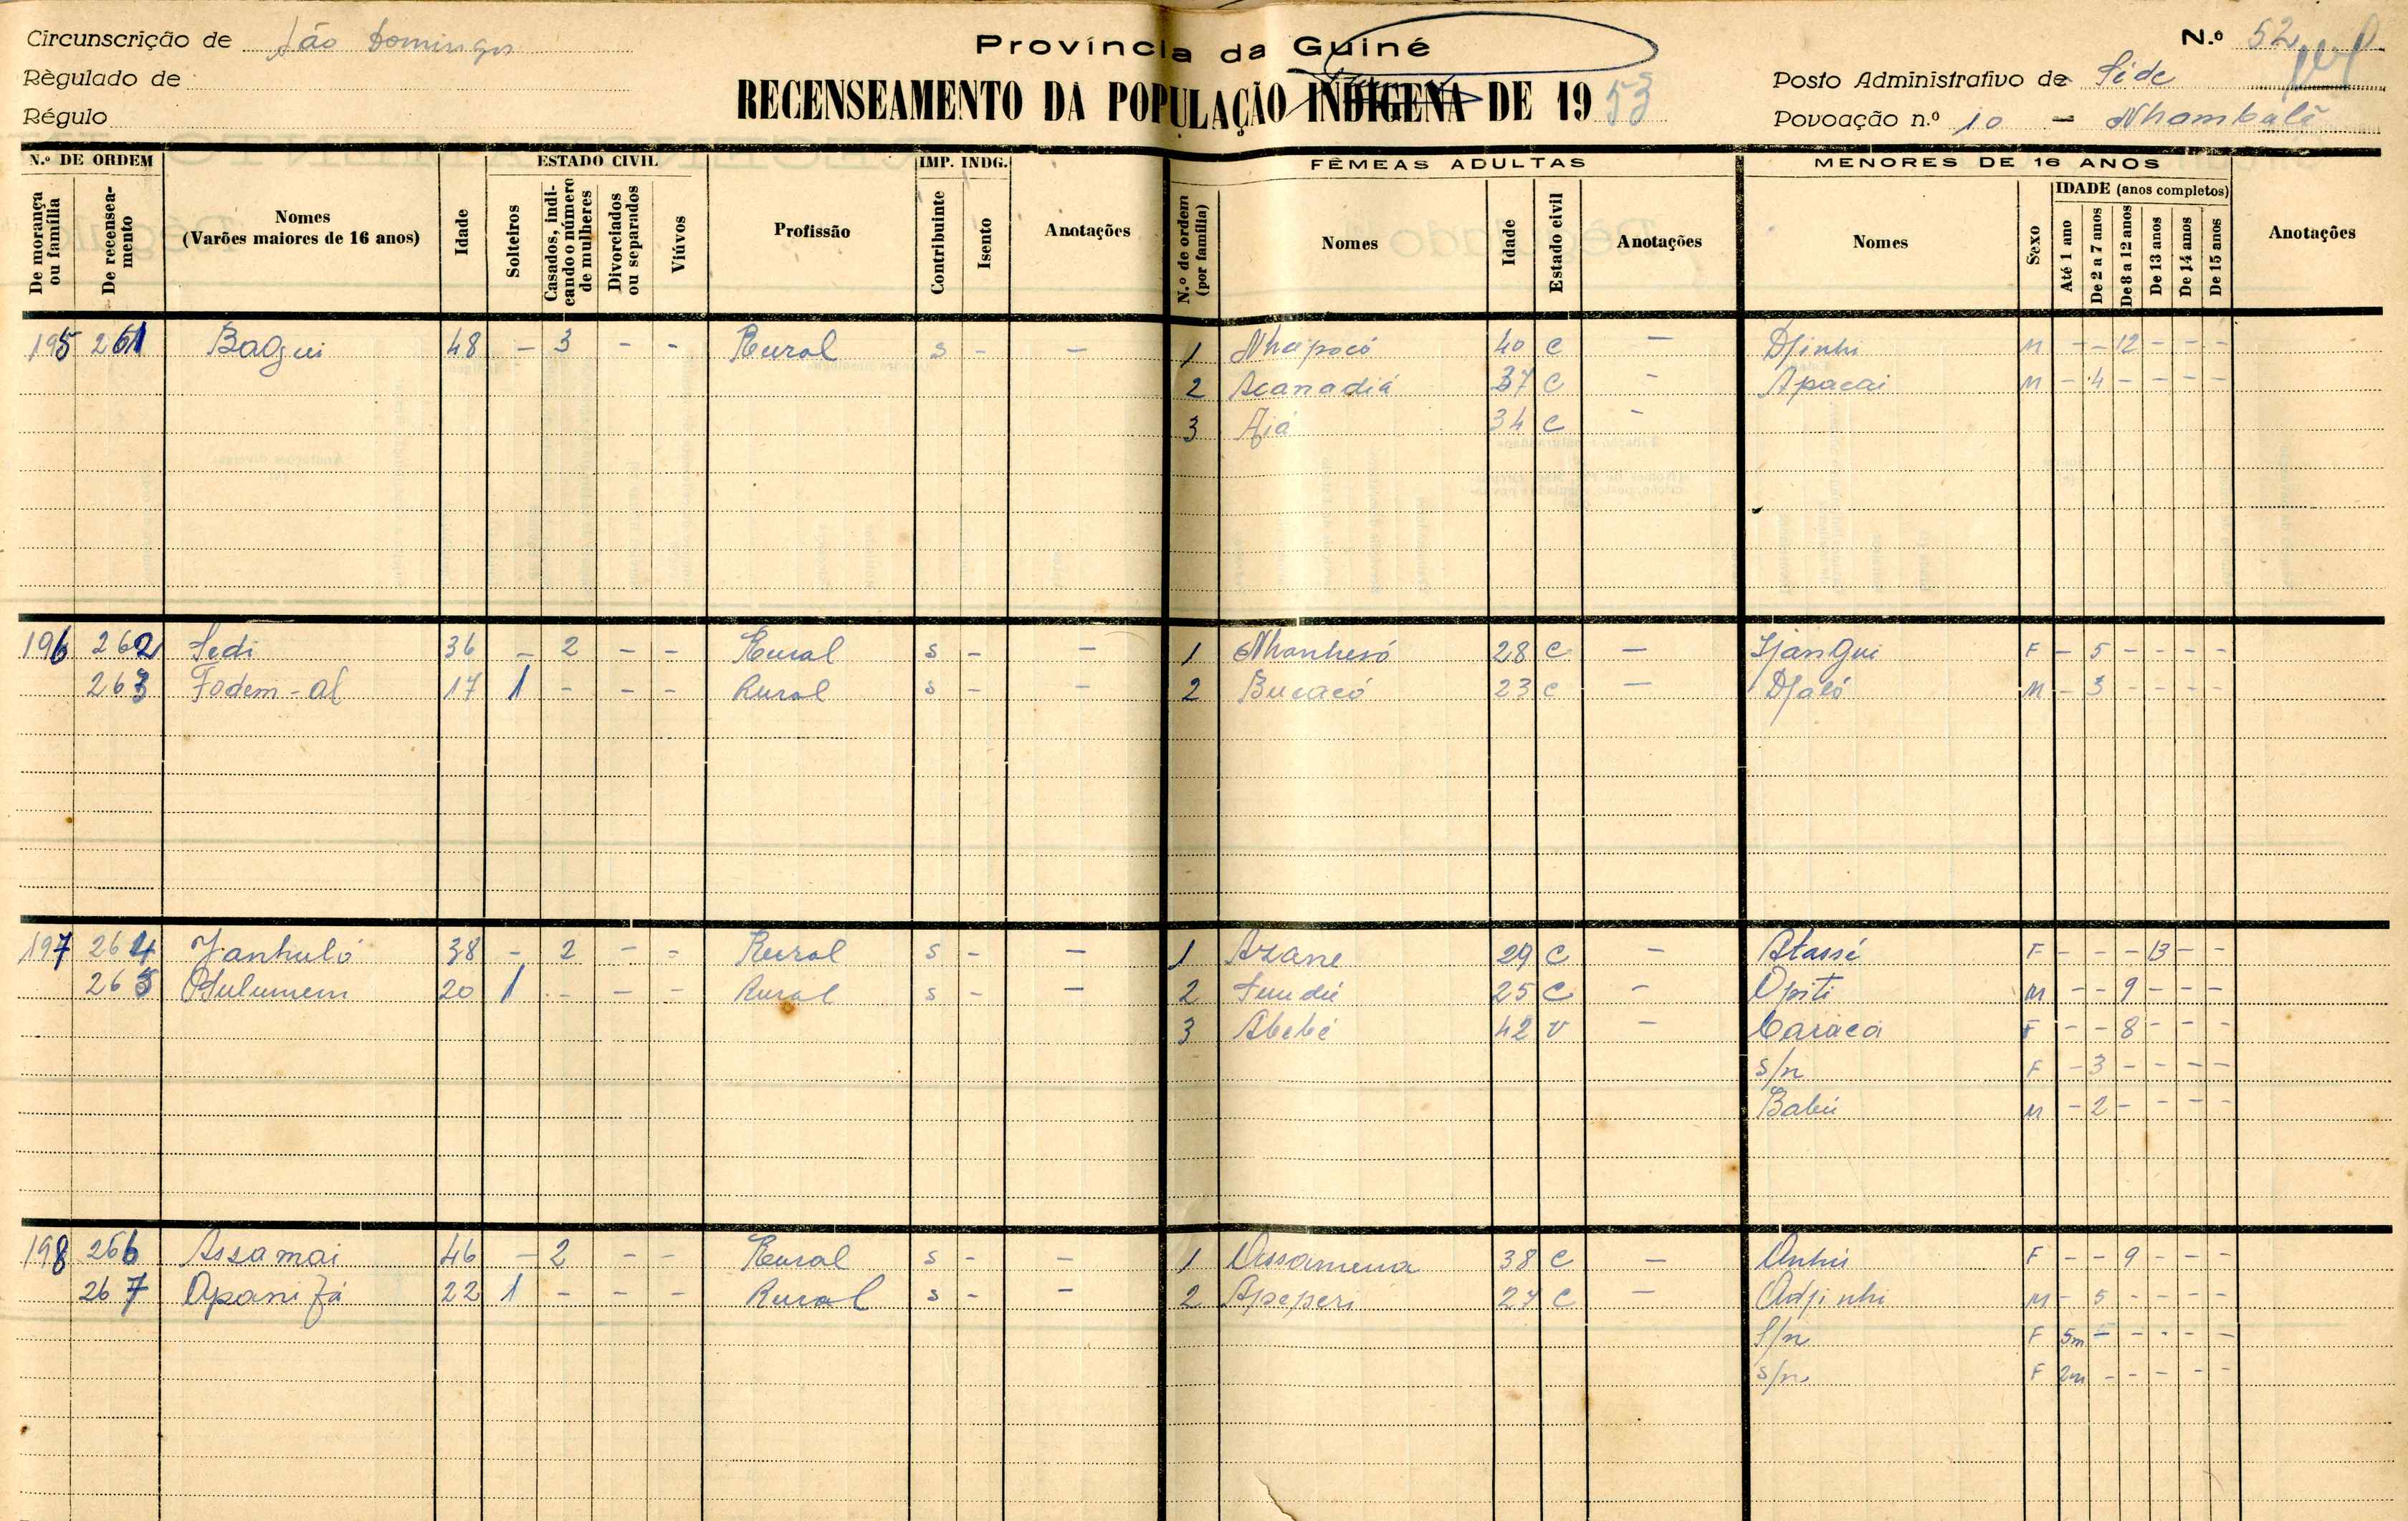 Circunscrição de São Domingos
Règulado de
Régulo
Província da Guiné
RECENSEAMENTO DA POPULAÇÃO INDÍGENA DE 1953
N.º 52
Posto Administrativo de Séde
Povoação n.º 10 - Nhambalã
N.º DE ORDEM ESTADO CIVIL IMP. INDG. FÊMEAS ADULTAS MENORES DE 16 ANOS
De morança ou família De recensea-mento Nomes (Varões maiores de 16 anos) Idade Solteiros Casados, indi-cando o número de mulheres Divorciados ou separados Viúvos Profissão Contribuinte Isento Anotações N.º de ordem (por família) Nomes Idade Estado civil Anotações Nomes Sexo IDADE (anos completos) Até 1 ano De 2 a 7 anos De 8 a 12 anos De 13 anos De 14 anos De 15 anos Anotações
195 261 Bagui 48 - 3 - - Rural s - - 1 Nhapocó 40 c - Djinhi M - - 12 - - -
2 Acanadiá 37 c - Apacai M - 4 - - - -
3 Ajá 34 c -
196 262 Sedi 36 - 2 - - Rural s - - 1 Nhanhesó 28 c - Jjangui F - 5 - - - -
263 Fodem-al 17 1 - - - Rural s - - 2 Bucacó 23 c - Djaló M - 3 - - - -
197 264 Janhuló 38 - 2 - - Rural s - - 1 Azane 29 c - Atassé F - - - 13 - -
265 Julumem 20 1 - - - Rural s - - 2 Sundú 25 c - Opiti M - - 9 - - -
3 Abebé 42 v - Caracá F - - 8 - - -
s/n F - 3 - - - -
Babú M - 2 - - - -
198 266 Assamai 46 - 2 - - Rural s - - 1 Assamena 38 c - Anhú F - - 9 - - -
267 Apanifá 22 1 - - - Rural s - - 2 Apeperi 27 c - Adjinhi M - 5 - - - -
S/n F 5m - - - - -
s/n F 2m - - - - -